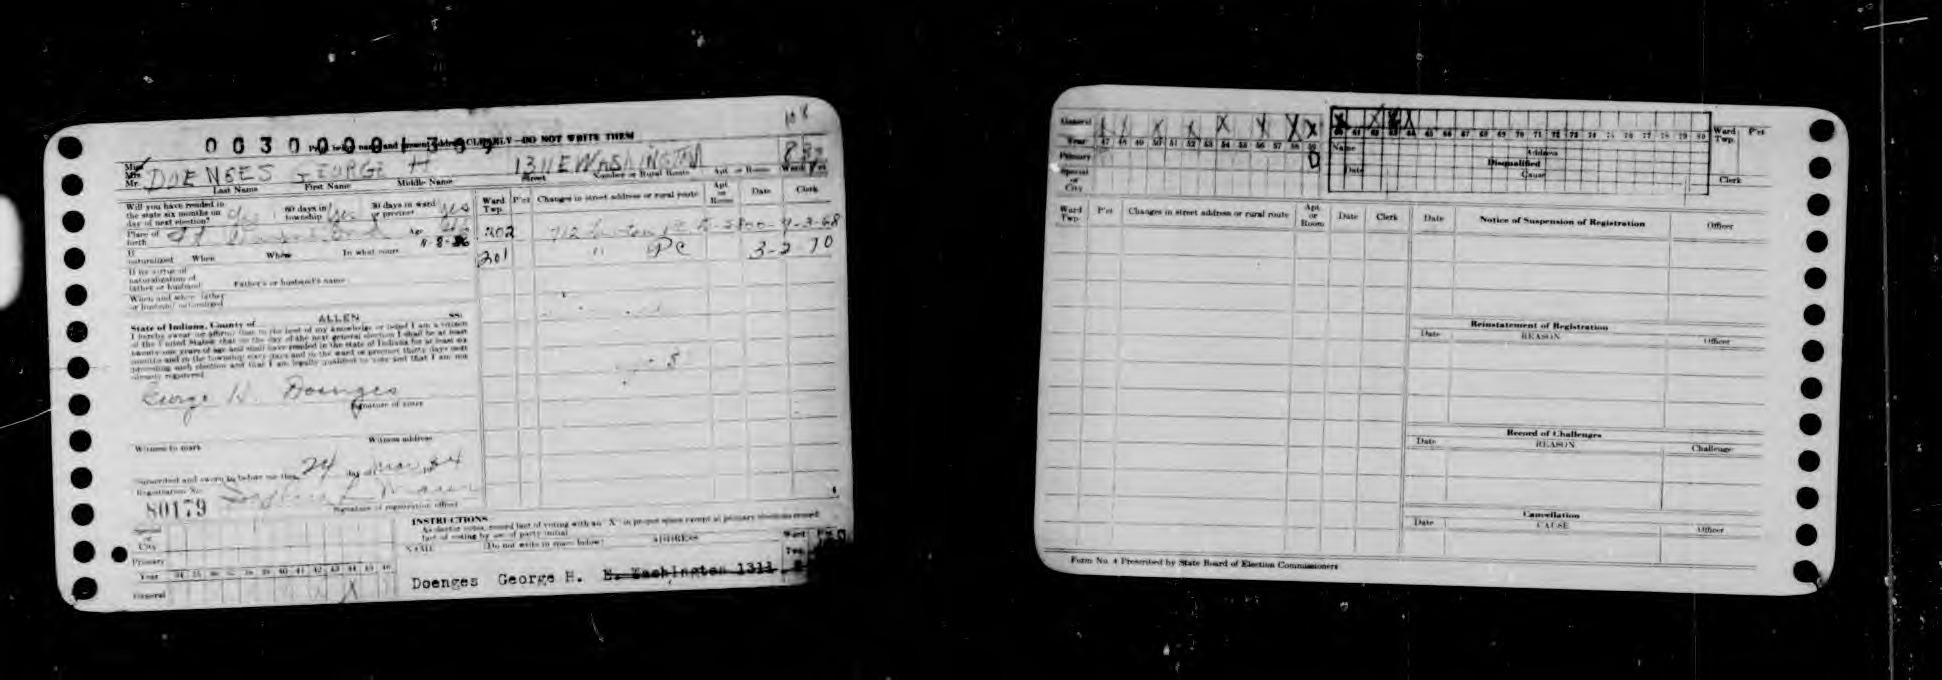 Print your name and present address CLEARLY—DO NOT WRITE THEM
Miss
Mrs.
Mr. DOENGES GEORGE H 1311 E WASHINGTON
Last Name First Name Middle Name Street Number or Rural Route Apt. or Room Ward
Will you have resided in
the state six months on
day of next election? yes 60 days in
township yes 30 days in ward
or precinct yes
Place of
birth Age
If
naturalized When Where In what court
If by virtue of
naturalization of
father or husband Father's or husband's name
When and where father
or husband naturalized
State of Indiana, County of ALLEN SS:
I hereby swear (or affirm) that to the best of my knowledge or belief I am a citizen
of the United States; that on the day of the next general election I shall be at least
twenty-one years of age and shall have resided in the state of Indiana for at least six
months and in the township sixty days and in the ward or precinct thirty days next
preceding such election and that I am legally qualified to vote and that I am not
already registered.
George H. Doenges
Signature of voter
Witness to mark Witness address
Subscribed and sworn to before me this 24 day of
Registration No.
80179
Signature of registration officer
Special
or
City
Primary
Year 34 35 36 37 38 39 40 41 42 43 44 45 46
General X
Ward
Twp. P'ct Changes in street address or rural route Apt.
or
Room Date Clerk
202 712 4-3-68
201 " PC 3-2 70
INSTRUCTIONS
As elector votes, record fact of voting with an "X" in proper space except at primary elections record
fact of voting by use of party initial.
NAME (Do not write in space below) ADDRESS Ward
Twp.
Doenges George H. E. Washington 1311
General X X X X X X X
Year 47 48 49 50 51 52 53 54 55 56 57 58 59
Primary D
Special
or
City
60 61 62 63 64 65 66 67 68 69 70 71 72 73 74 75 76 77 78 79 80 Ward
Twp. P'ct
Name Address
Disqualified
Date Cause Clerk
Ward
Twp. P'ct Changes in street address or rural route Apt.
or
Room Date Clerk
Date Notice of Suspension of Registration Officer
Reinstatement of Registration
Date REASON Officer
Record of Challenges
Date REASON Challenger
Cancellation
Date CAUSE Officer
Form No. 4 Prescribed by State Board of Election Commissioners